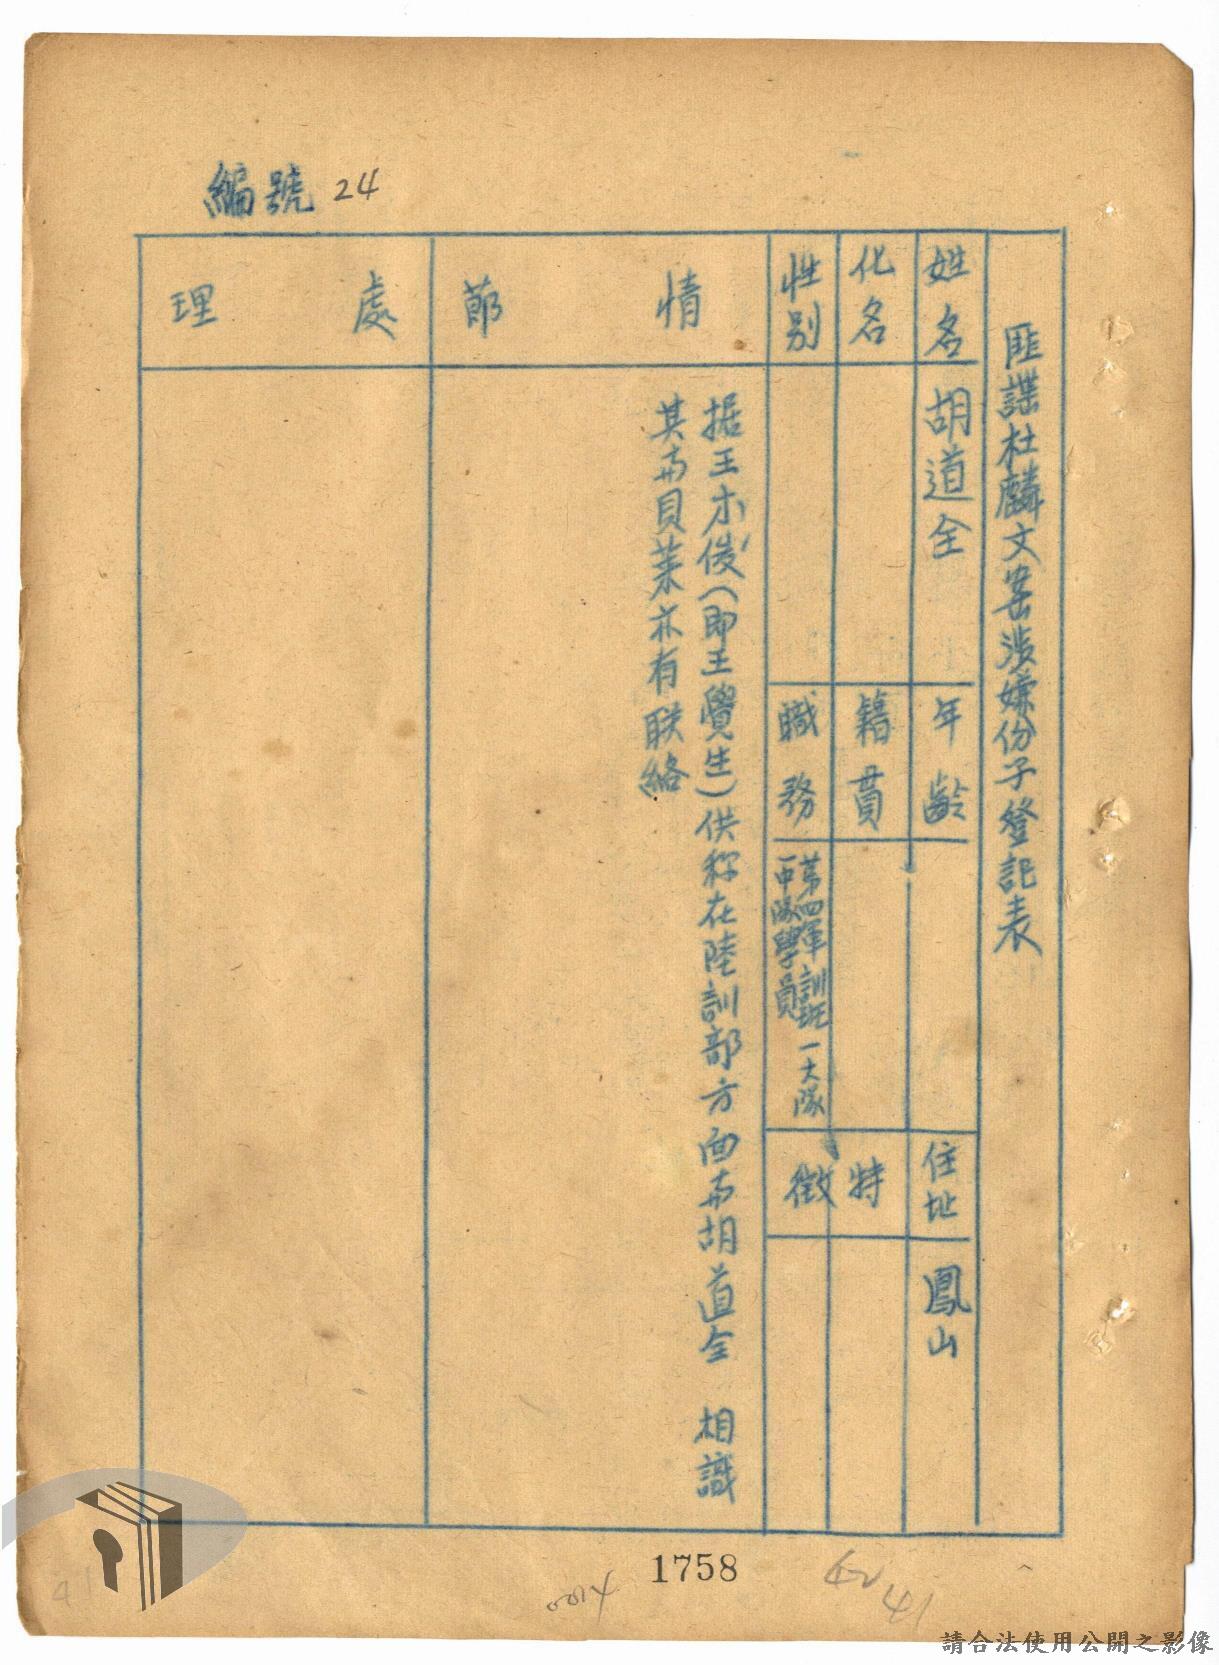 編號 24
匪諜杜麟文案涉嫌份子登記表
姓名 胡道全 年齡 住址 鳳山
化名 籍貫 特徵
性別 職務 第四軍訓班一大隊
一中隊學員
情節
据王木俊(即王覺生)供称在陸訓部方面與胡道全 相識
其與貝萊亦有联絡
處理
1758
0014
42
41
41
請合法使用公開之影像